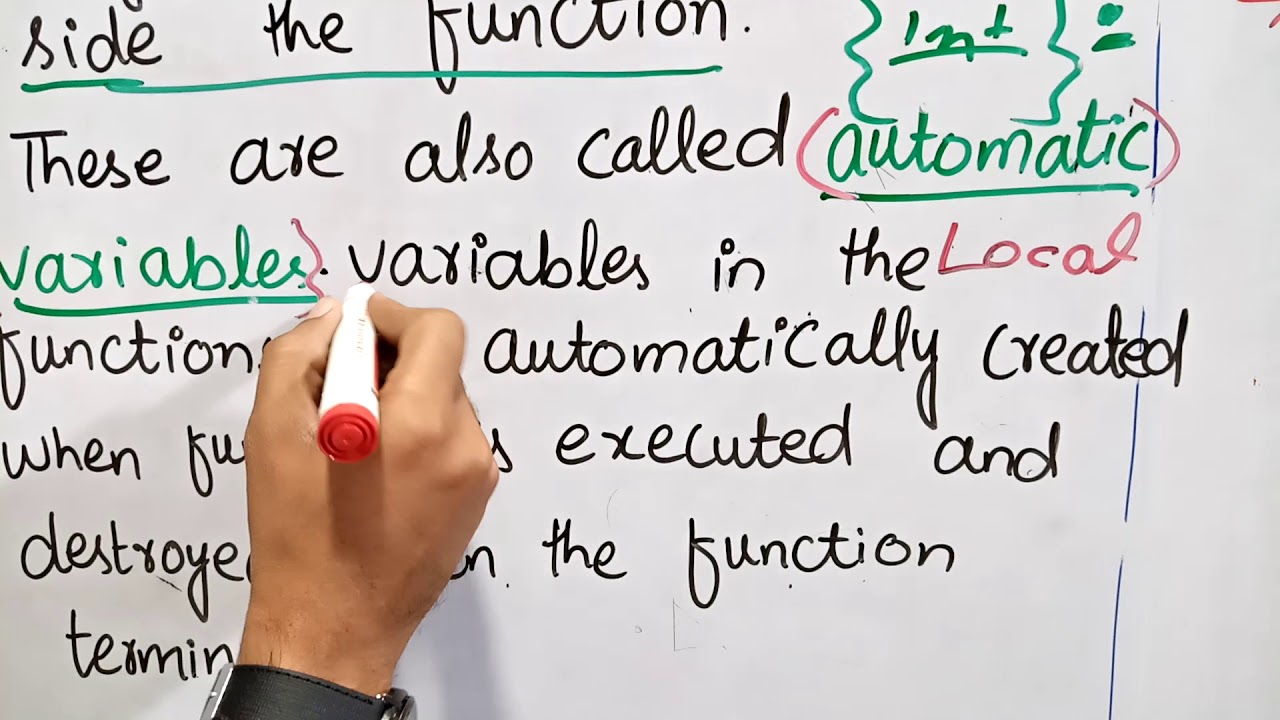 side the function. { int } :
These are also called (automatic)
variables}. variables in the Local
function automatically created
when executed and
the function